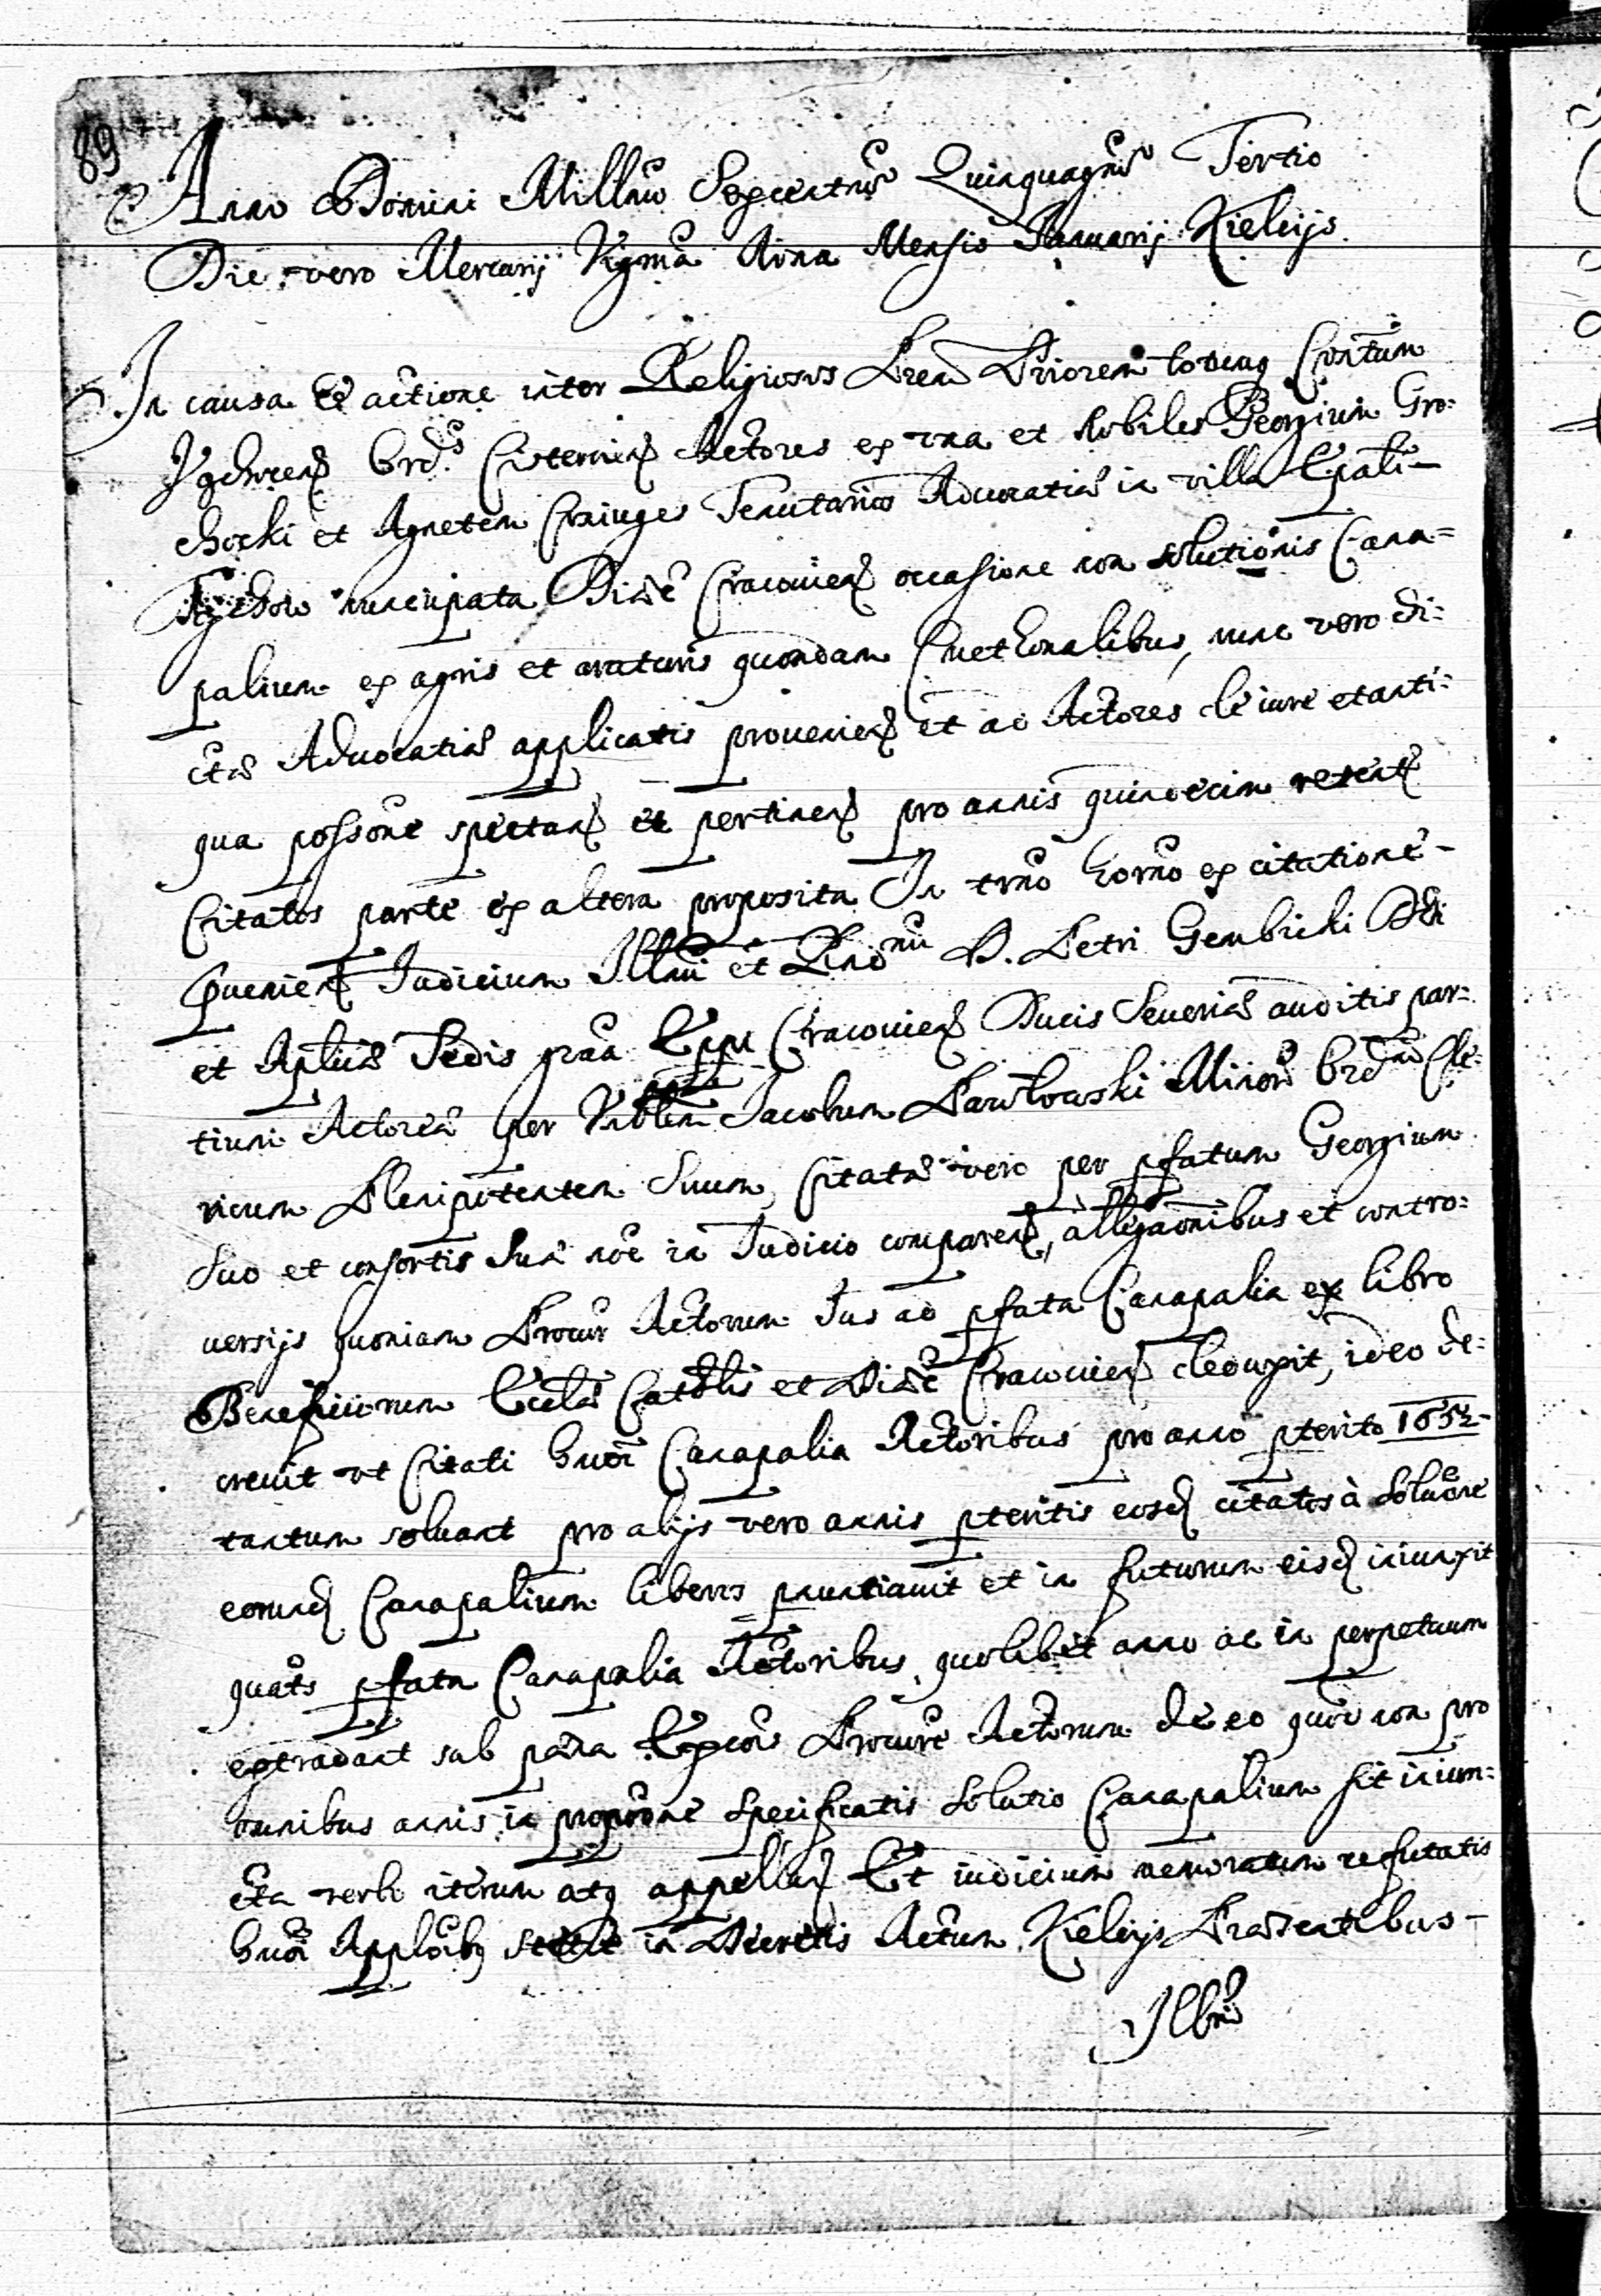 89
Anno Domini Millmo Sexcentmo Quinquagmo Tertio
Die vero Mercurij Vigma Nona Mensis Januarij Kielcijs.
In causa et actione inter Religiosos Priorem totumq Conventum
Ordis Cisterciens Actores ex una et Nobiles Georgium Gro-
chocki et Agnetem Coniuges Tenutarios Advocatiae in villa Epali
nuncupata Dioec Cracovien occasione non solutionis Cana-
palium ex agris et araturis quondam Cmethonalibus, nunc vero di-
ctae Advocatiae applicatis provenien et ad Actores de iure et anti-
qua possone spectan et pertinen pro annis quindecim retent
Citatos parte ex altera proposita In trno horno ex citatione
Judicium Illmi et Rndmi D. Petri Gembicki Dei
et Aplicae Sedis graa Eppi Cracovien Ducis Severiae auditis par-
tium Actorea per Vnblem Jacobum Pawlowski Minor Ord Cle-
ricum Plenipotentem Suum, Citata vero per pfatum Georgium
Suo et consortis Suae noe in Judicio comparen, allegaonibus et contro-
versijs quoniam Procur Actorum Jus ad pfata Canapalia ex libro
Beneficiorum Ecclae Cathlis et Dioec Cracovien deduxit, ideo de-
crevit ut Citati huoi Canapalia Actoribus pro anno pterito 1652
tantum solvant pro alijs vero annis pteritis eosd citatos à Soluone
eorund Canapalium liberos pnuntiavit et in futurum eisd iniunxit
quats pfata Canapalia Actoribus quolibet anno ac in perpetuum
extradant sub paena Excois Procure Actorum de eo quod non pro
omnibus annis in propone specificatis Solutio Canapalium sit iniun-
cta verbo iterum atq appellan Et iudicium memoratum refutatis
huoi Applonibq in Decretis Actum Kielcijs Praesentibus
Illbus